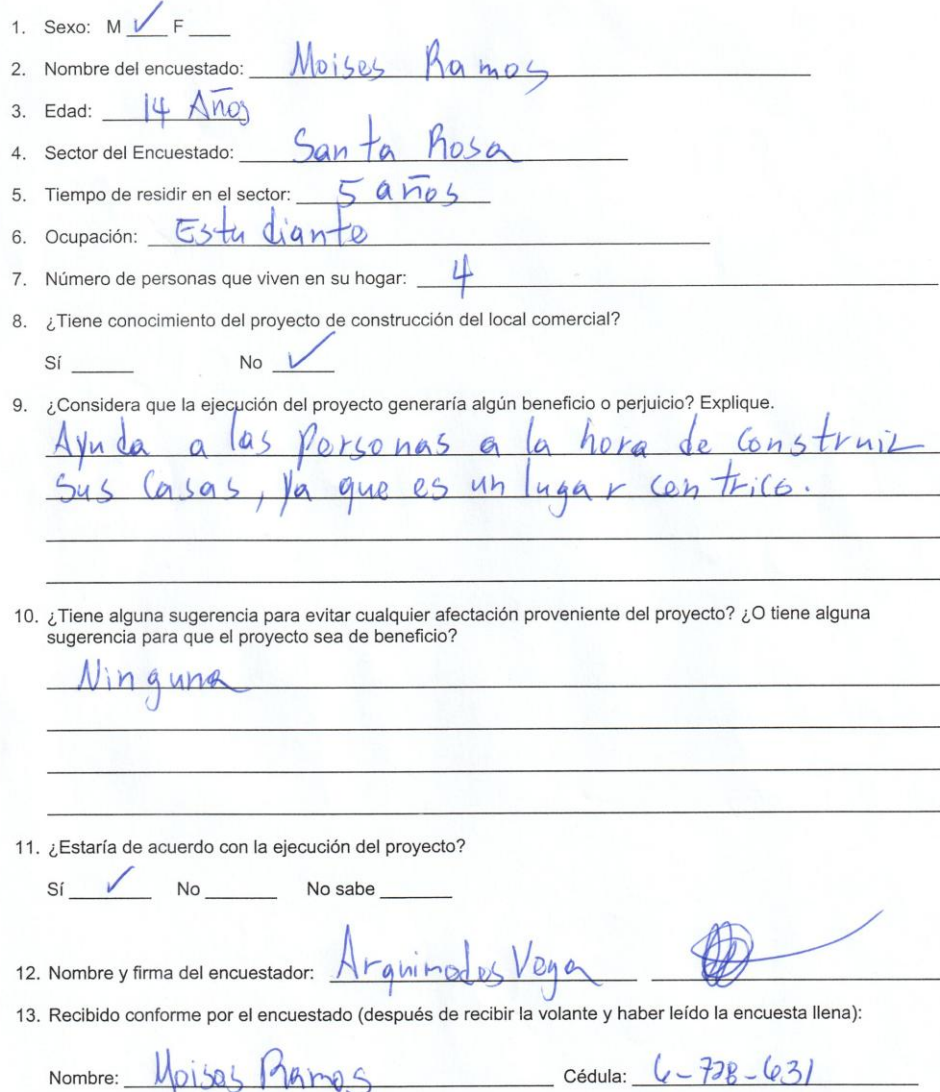 1. Sexo: M ✓ F ____
2. Nombre del encuestado: Moises Ramos
3. Edad: 14 Años
4. Sector del Encuestado: Santa Rosa
5. Tiempo de residir en el sector: 5 años
6. Ocupación: Estudiante
7. Número de personas que viven en su hogar: 4
8. ¿Tiene conocimiento del proyecto de construcción del local comercial?
Sí ____ No ✓
9. ¿Considera que la ejecución del proyecto generaría algún beneficio o perjuicio? Explique.
Ayuda a las Personas a la hora de Construir
Sus Casas, ya que es un lugar centrico.
10. ¿Tiene alguna sugerencia para evitar cualquier afectación proveniente del proyecto? ¿O tiene alguna
sugerencia para que el proyecto sea de beneficio?
Ninguna
11. ¿Estaría de acuerdo con la ejecución del proyecto?
Sí ✓ No ____ No sabe ____
12. Nombre y firma del encuestador: Arquimedes Vega
13. Recibido conforme por el encuestado (después de recibir la volante y haber leído la encuesta llena):
Nombre: Moises Ramos Cédula: